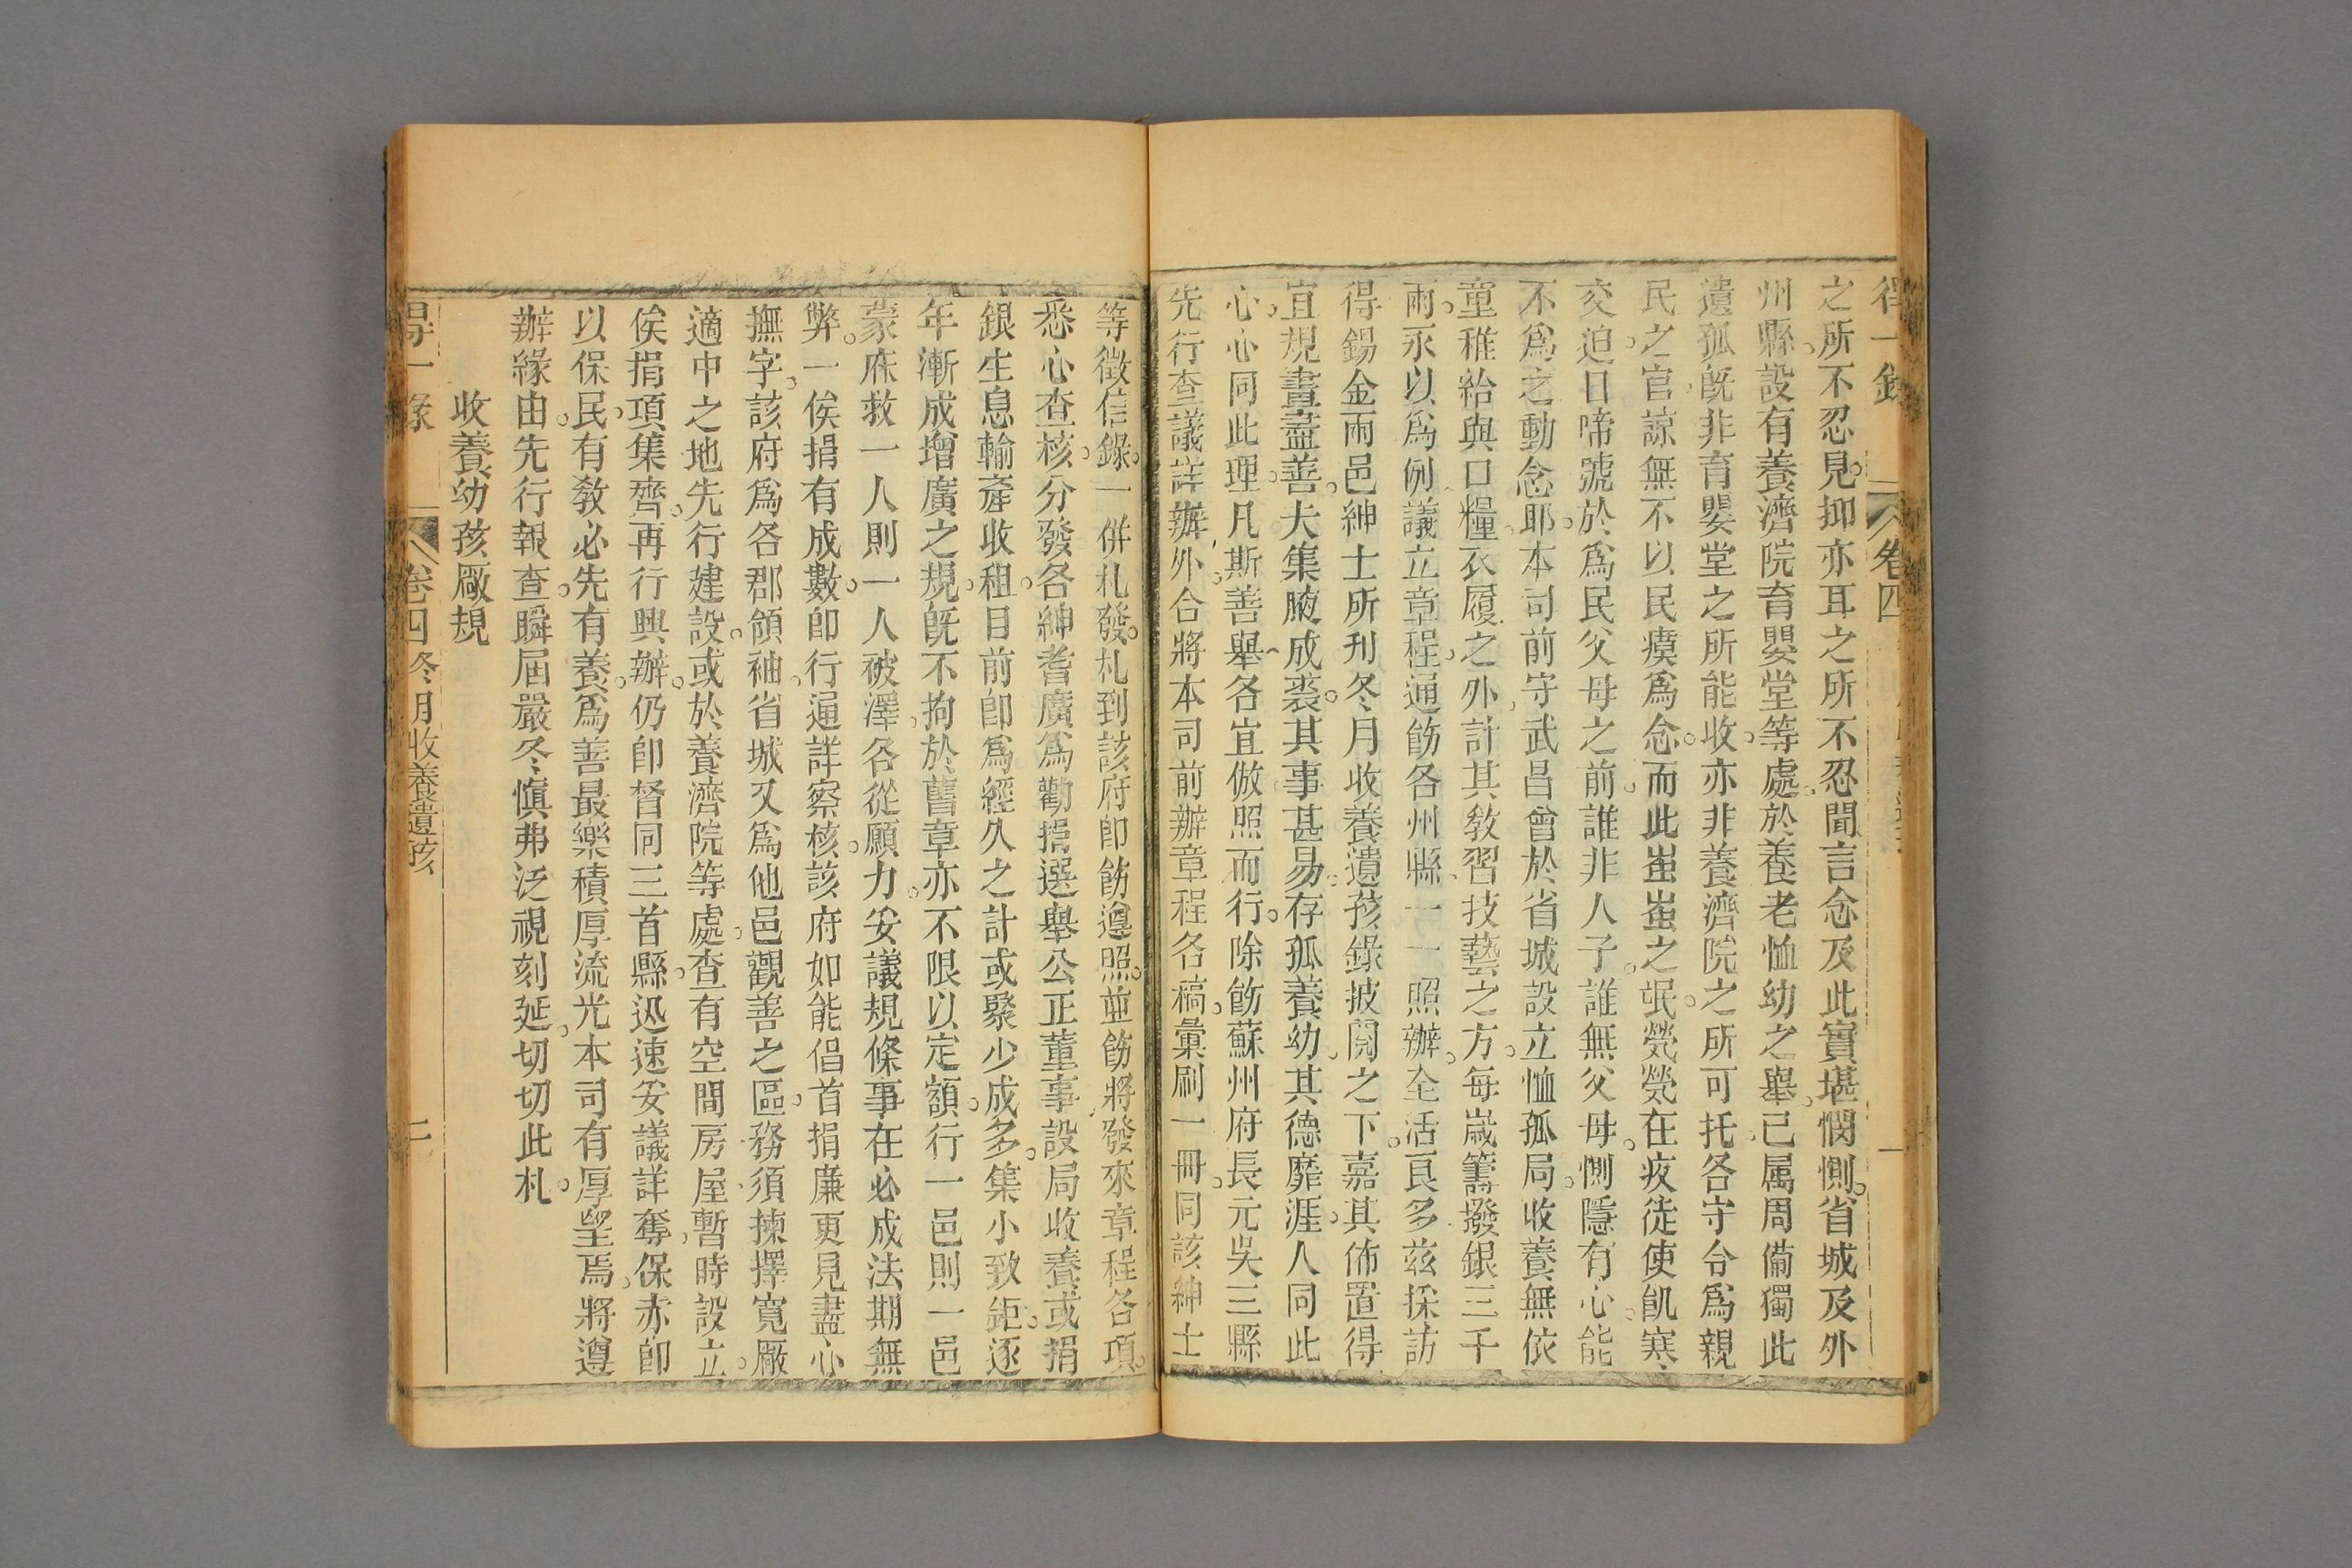 得一錄 卷四 一
之所不忍見。抑亦耳之所不忍聞。言念及此實堪憫惻。省城及外
州縣。設有養濟院育嬰堂等處。於養老恤幼之舉。已属周備獨此
遺孤。旣非育嬰堂之所能收。亦非養濟院之所可托。各守令爲親
民之官。諒無不以民瘼爲念。而此蚩蚩之氓。煢煢在疚。徒使飢寒
交迫。日啼號於爲民父母之前。誰非人子。誰無父母。惻隱有心。能
不爲之動念耶。本司前守武昌曾於省城設立恤孤局。收養無依
童稚。給與口糧衣履之外。計其教習技藝之方。每歲籌撥銀三千
兩。永以爲例。議立章程。通飭各州縣。一一照辦。全活良多。兹採訪
得錫金兩邑紳士所刋冬月收養遺孩錄披閱之下。嘉其佈置得
宜。規畫盡善。夫集腋成裘。其事甚易。存孤養幼。其德靡涯。人同此
心。心同此理。凡斯善舉各宜倣照而行。除飭蘇州府長元吳三縣
先行查議詳辦外。合將本司前辦章程各稿。彙刷一冊。同該紳士
等徵信錄。一併札發。札到該府卽飭遵照。並飭將發來章程各項。
悉心查核。分發各紳耆廣爲勸捐。選舉公正董事。設局收養。或捐
銀生息。輸產收租。目前卽爲經久之計。或聚少成多。集小致鉅。逐
年漸成增廣之規。旣不拘於舊章。亦不限以定額。行一邑則一邑
蒙庥。救一人則一人被澤。各從願力。安議規條。事在必成。法期無
弊。一俟捐有成數。卽行通詳察核。該府如能倡首捐廉。更見盡心
撫字。該府爲各郡領袖。省城又爲他邑觀善之區。務須揀擇寛厰
適中之地先行建設。或於養濟院等處。查有空間房屋。暫時設立。
俟捐項集齊。再行興辦。仍卽督同三首縣。迅速妥議詳奪。保赤卽
以保民。有教必先有養。爲善最樂。積厚流光。本司有厚望焉。將遵
辦緣由。先行報查。瞬屆嚴冬。愼弗泛視刻延。切切此札。
收養幼孩厰規
得一錄 卷四 冬月收養遺孩 二